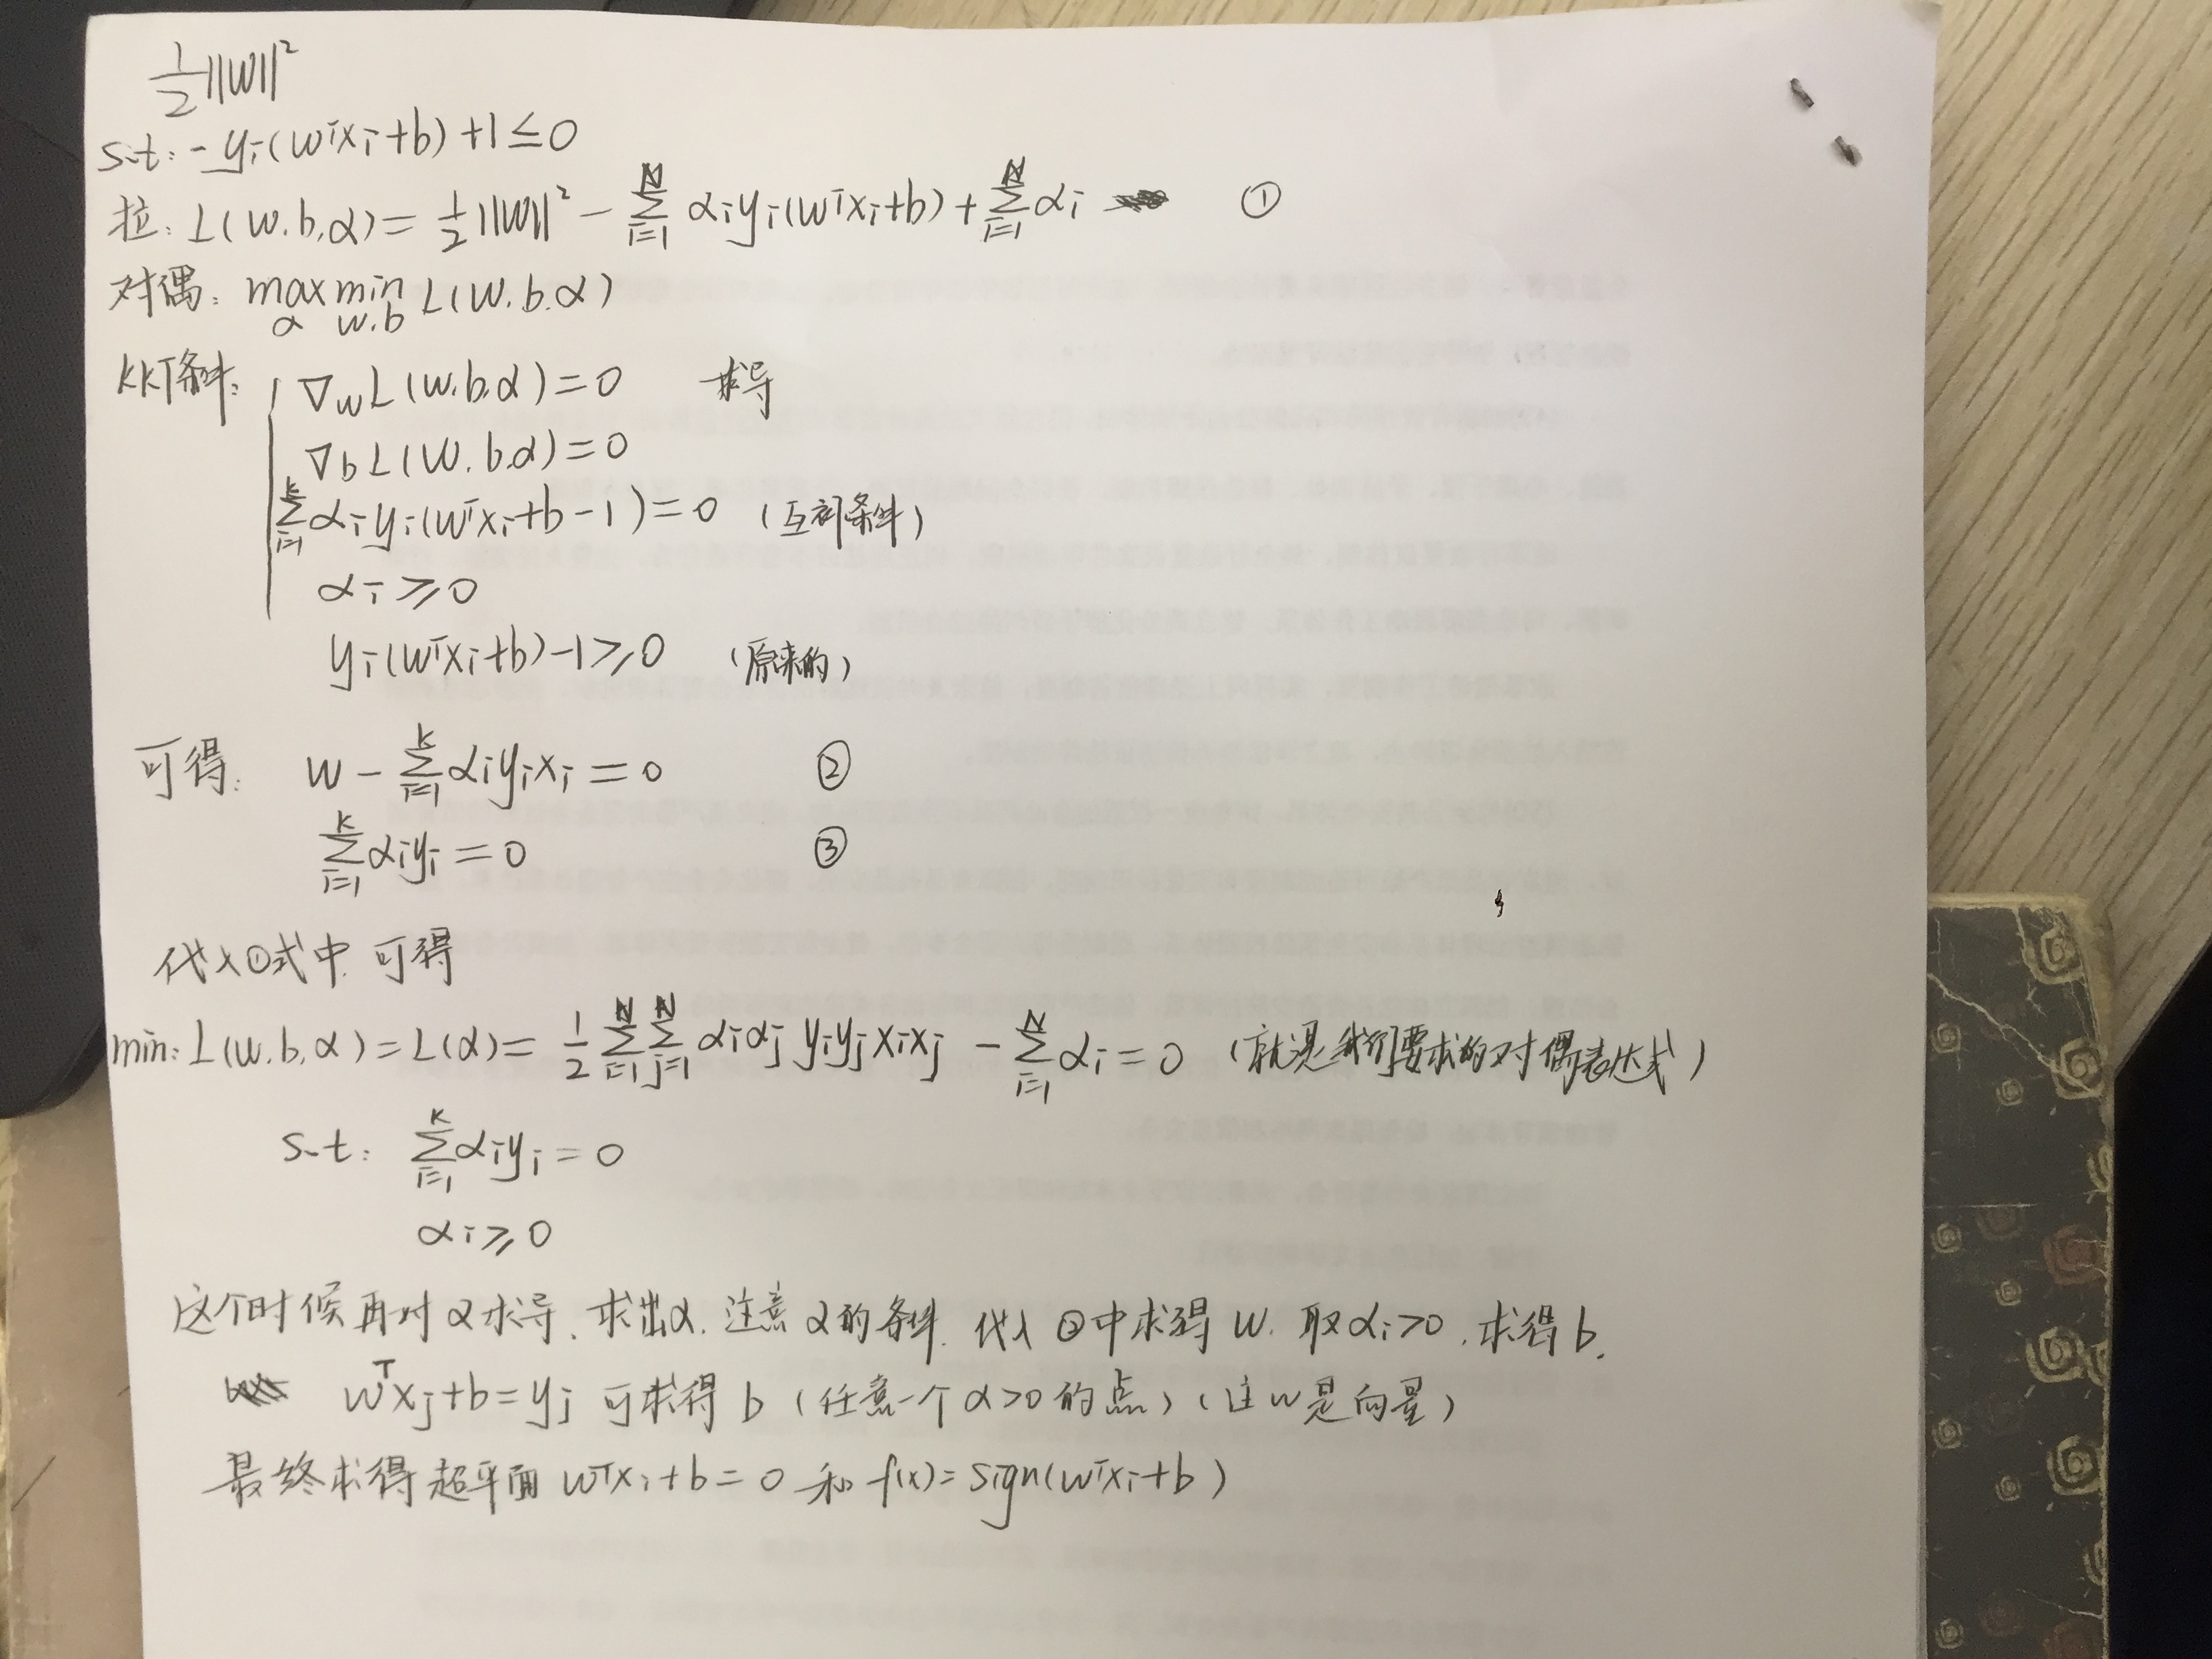 ½||w||²
s.t: -yᵢ(wᵀxᵢ+b)+1≤0
拉: L(w.b,α)=½||w||²-∑ᵢ₌₁ᴺαᵢyᵢ(wᵀxᵢ+b)+∑ᵢ₌₁ᴺαᵢ ①
对偶: max_α min_w.b L(w.b.α)
KKT条件: ∇wL(w.b,α)=0 求导
∇bL(w.b,α)=0
∑ᵢ₌₁ᵏαᵢyᵢ(wᵀxᵢ+b-1)=0 (互补条件)
αᵢ≥0
yᵢ(wᵀxᵢ+b)-1≥0 (原来的)
可得: w-∑ᵢ₌₁ᵏαᵢyᵢxᵢ=0 ②
∑ᵢ₌₁ᵏαᵢyᵢ=0 ③
代入①式中 可得
min: L(w.b,α)=L(α)=½∑ᵢ₌₁ᴺ∑ⱼ₌₁ᴺαᵢαⱼyᵢyⱼxᵢxⱼ-∑ᵢ₌₁ᴺαᵢ=0 (就是我们要求的对偶表达式)
s.t: ∑ᵢ₌₁ᵏαᵢyᵢ=0
αᵢ≥0
这个时候再对α求导. 求出α. 注意α的条件. 代入②中求得w. 取αᵢ>0. 求得b.
wᵀxⱼ+b=yⱼ 可求得b (任意一个α>0的点) (注w是向量)
最终求得超平面wᵀxᵢ+b=0 和 f(x)=sign(wᵀxᵢ+b)